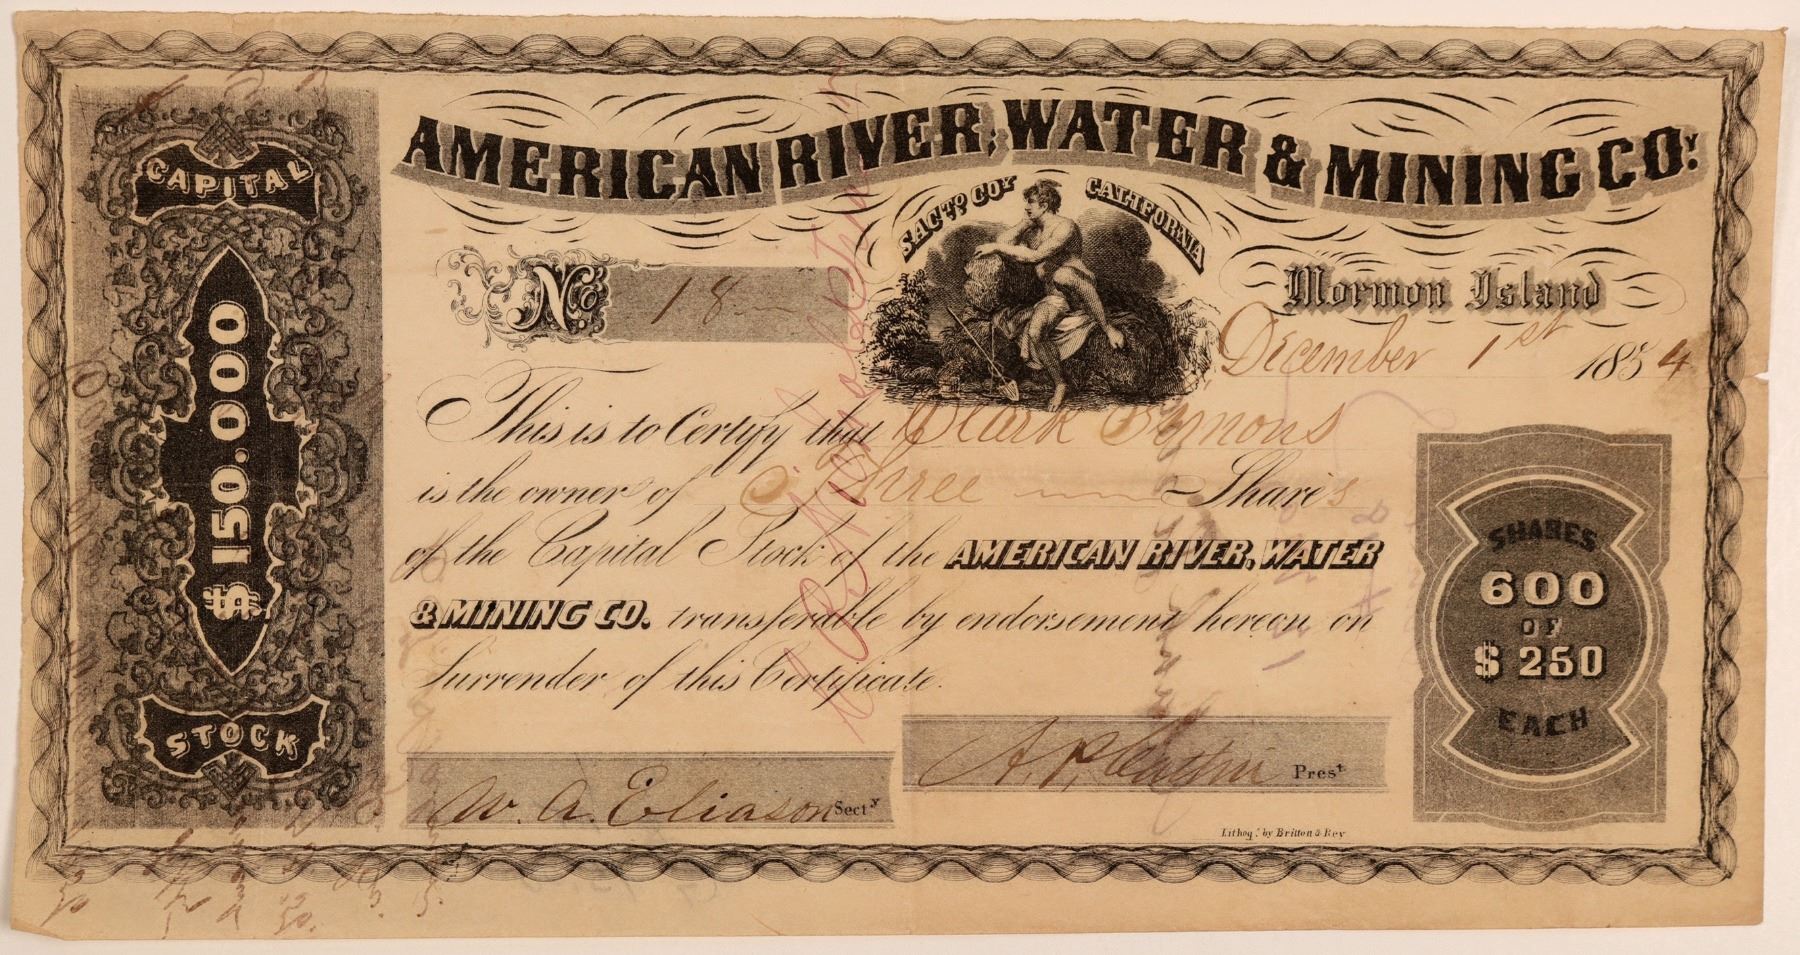 AMERICAN RIVER, WATER & MINING COY.
SACTO COY CALIFORNIA
CAPITAL
$150.000
STOCK
No. 18
Mormon Island
December 1st 1854
This is to Certify that Clark Symons
is the owner of Three Shares
of the Capital Stock of the AMERICAN RIVER, WATER
& MINING CO. transferable by endorsement hereon on
Surrender of this Certificate.
SHARES
600
OF
$250
EACH
W. A. Eliason Secty
A. P. Catlin Prest
Lithog. by Britton & Rey